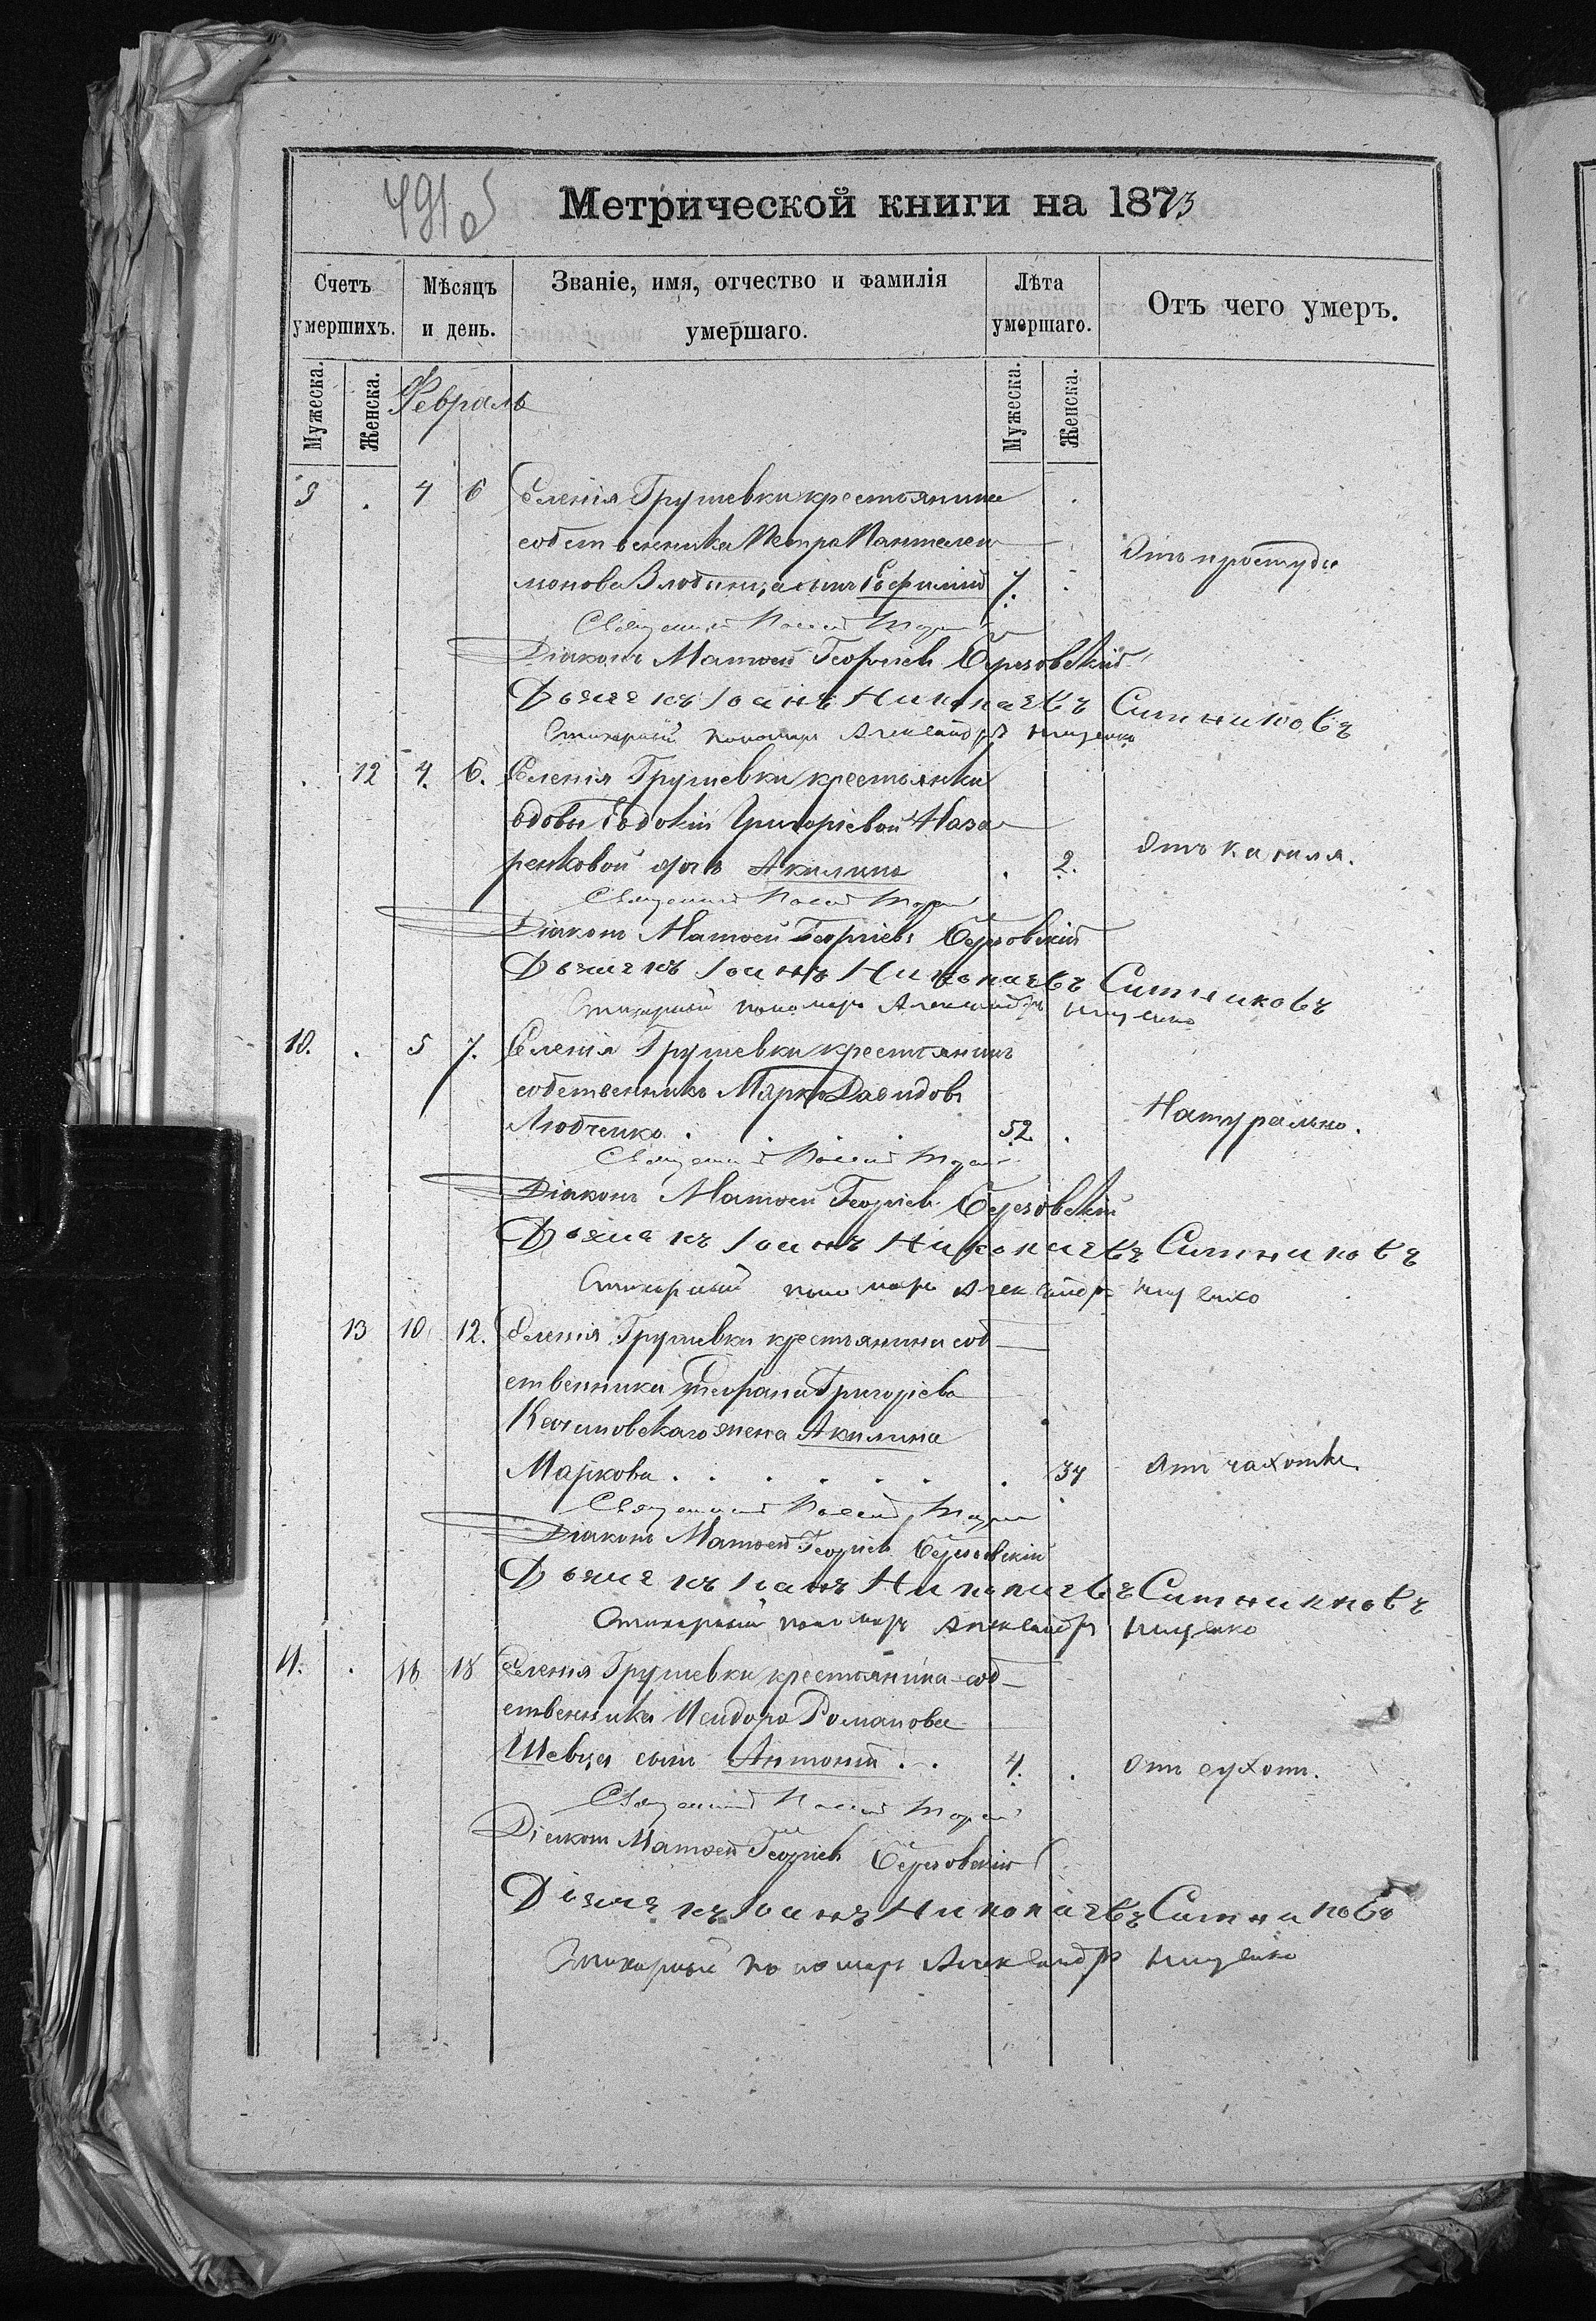 Метрической книги на 1873
Счетъ умершихъ.
Мѣсяцъ и день.
Званіе, имя, отчество и фамилія умершаго.
Лѣта умершаго.
Отъ чего умеръ.
Мужеска. Женска. Февраль Мужеска. Женска.
9 . 4 6 Селенія Грушевки крестьянина
собственника Петра Пантелей
монова сынъ Евфимій 7. . Отъ простуды
Діаконъ Матѳей Георгіевъ Березовскій
Дьячекъ Іоанъ Николаевъ Ситниковъ
Стихарный пономарь Александръ Ищенко
. 12 4. 6. Селенія Грушевки крестьянки
вдовы Евдокіи Григоріевой Наза
ренковой дочь Акилина . 2. Отъ кашля.
Діаконъ Матѳей Георгіевъ Березовскій
Дьячекъ Іоанъ Николаевъ Ситниковъ
Стихарный пономарь Александръ Ищенко
10. . 5 7. Селенія Грушевки крестьянинъ
собственникъ Марко Давидовъ
Любченко . . . . 52 . Натурально.
Діаконъ Матѳей Георгіевъ Березовскій
Дьячекъ Іоанъ Николаевъ Ситниковъ
Стихарный пономарь Александръ Ищенко
13 10 12. Селенія Грушевки крестьянина соб
ственника Григоріева
жена Акилина
Маркова . . . . . . 34 Отъ чахотки
Діаконъ Матѳей Георгіевъ Березовскій
Дьячекъ Іоанъ Николаевъ Ситниковъ
Стихарный пономарь Александръ Ищенко
11. . 16 18 Селенія Грушевки крестьянина соб
ственника Исидора Романова
Шевца сынъ Антоній . . 4. . Отъ сухот.
Діаконъ Матѳей Георгіевъ Березовскій
Дьячекъ Іоанъ Николаевъ Ситниковъ
Стихарный пономарь Александръ Ищенко